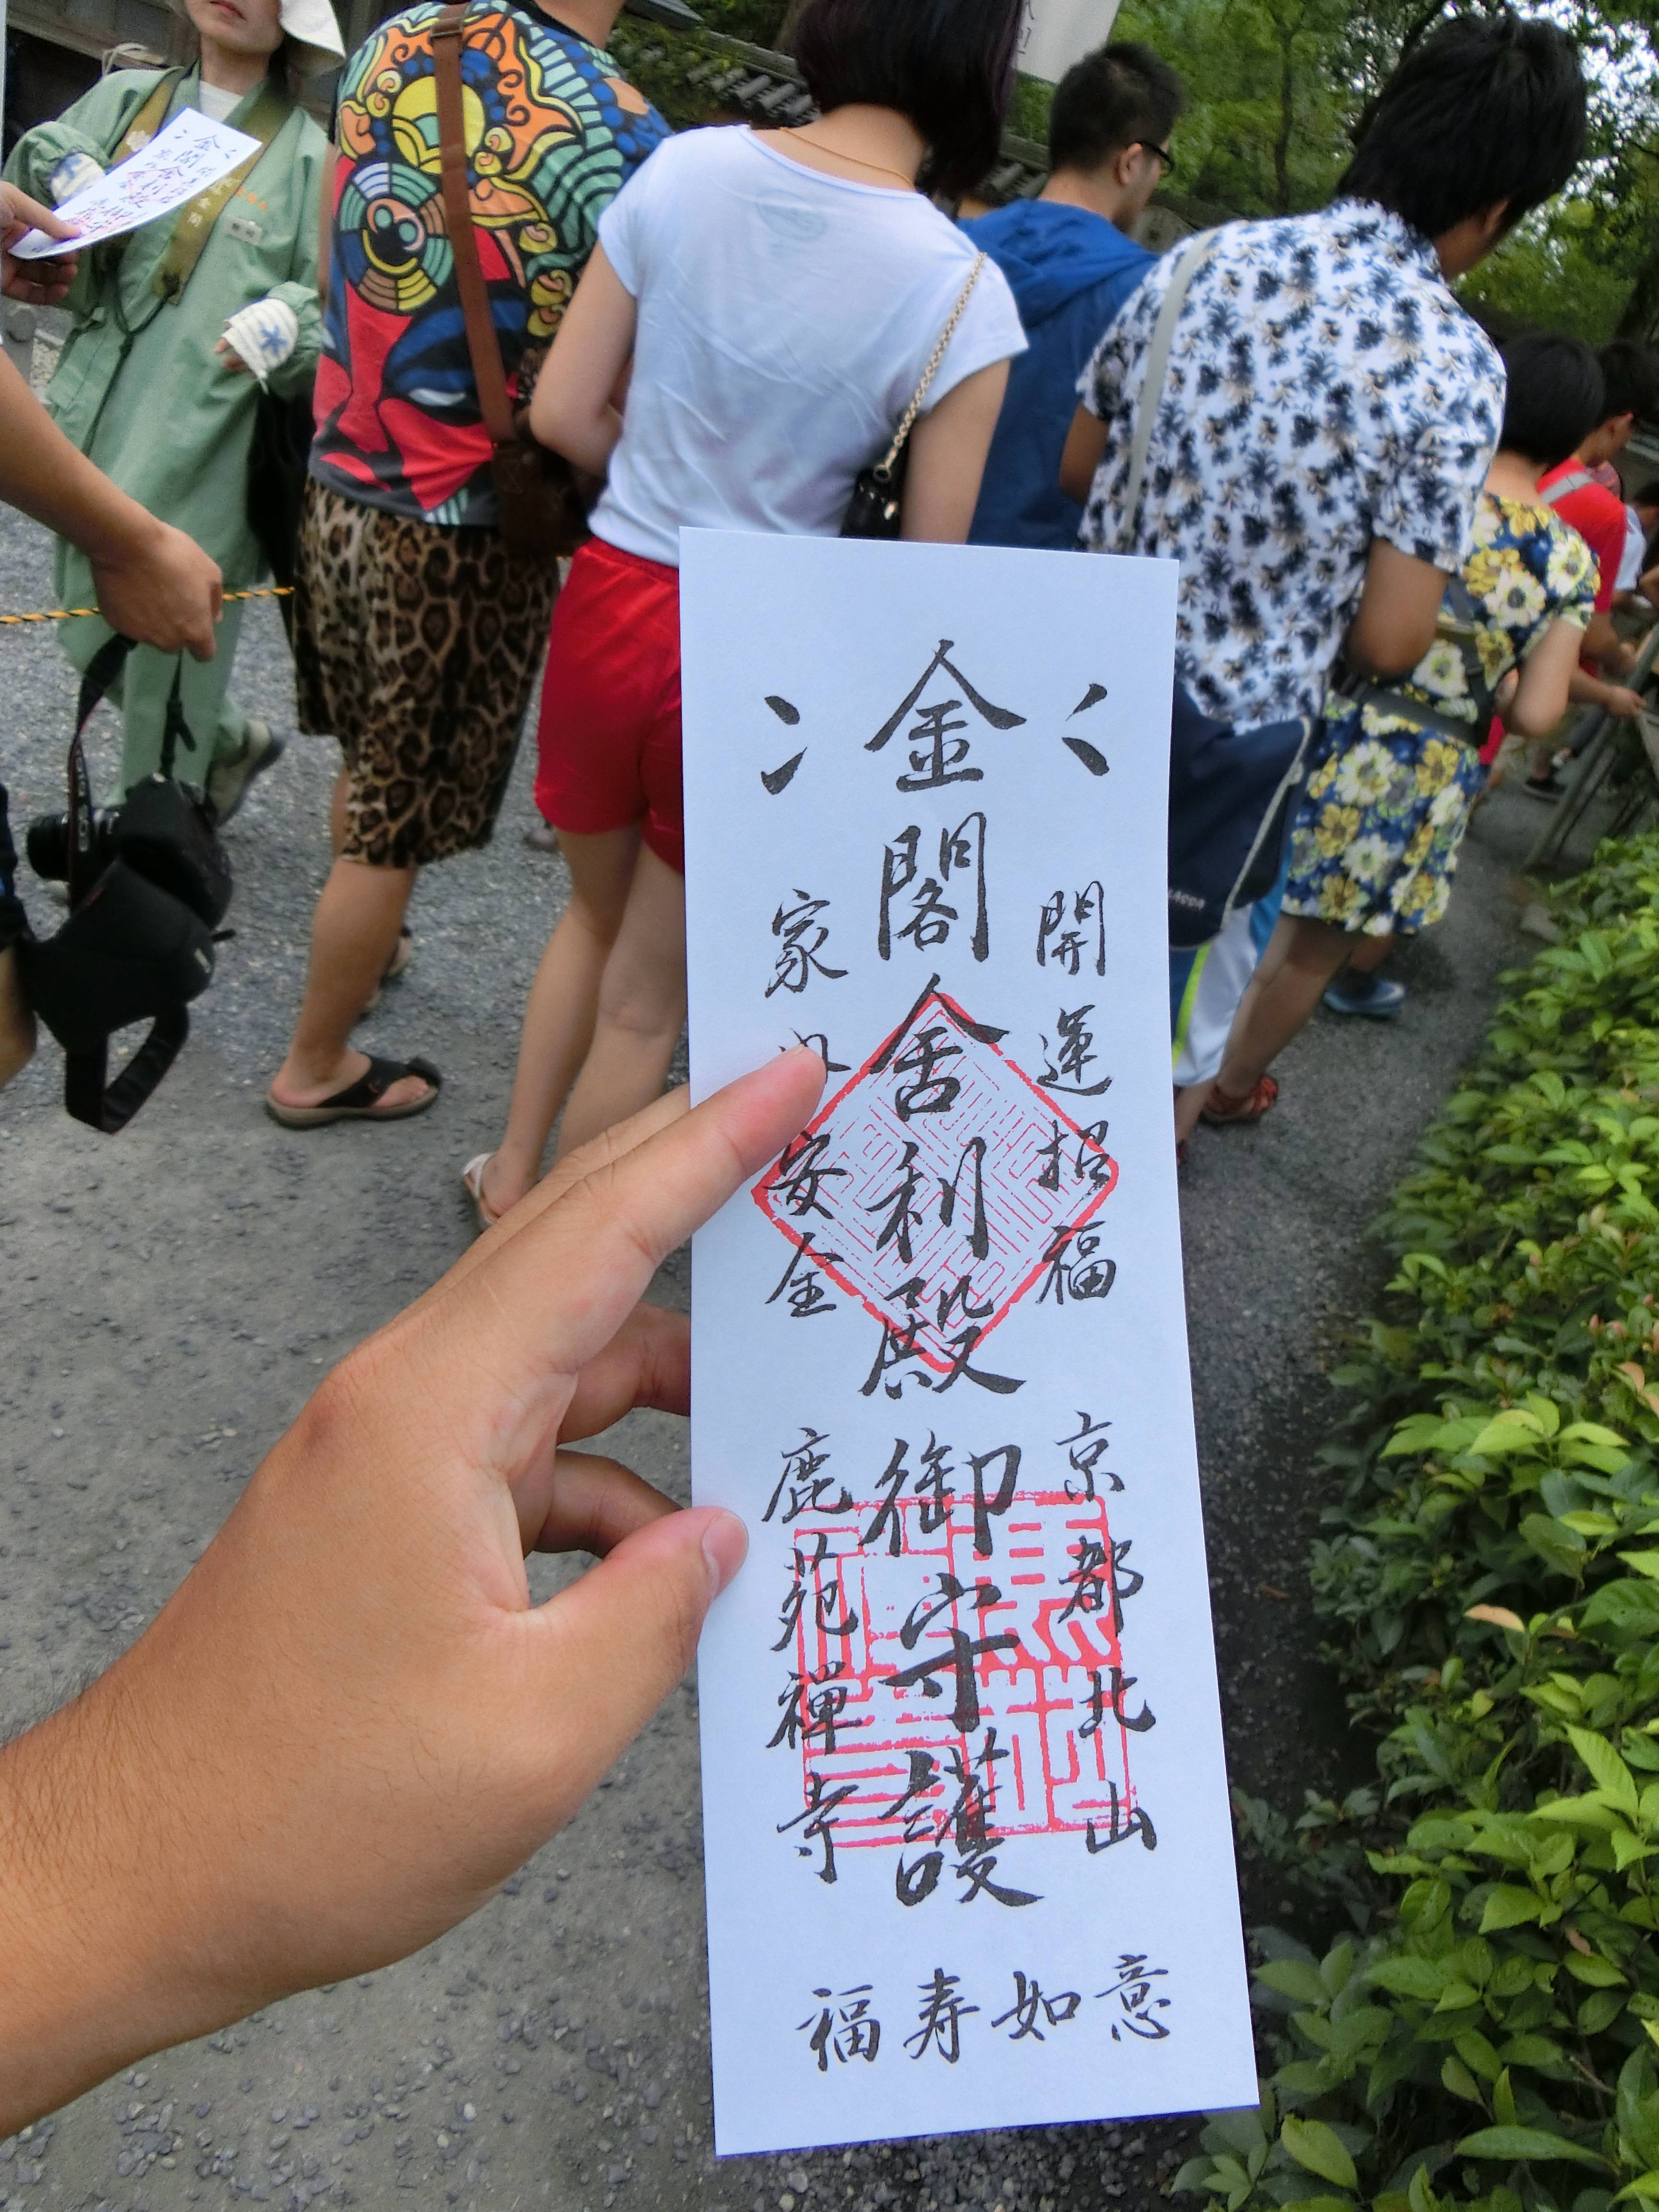 開運招福
京都北山
金閣舎利殿御守護
家 安全
鹿苑禅寺
福寿如意